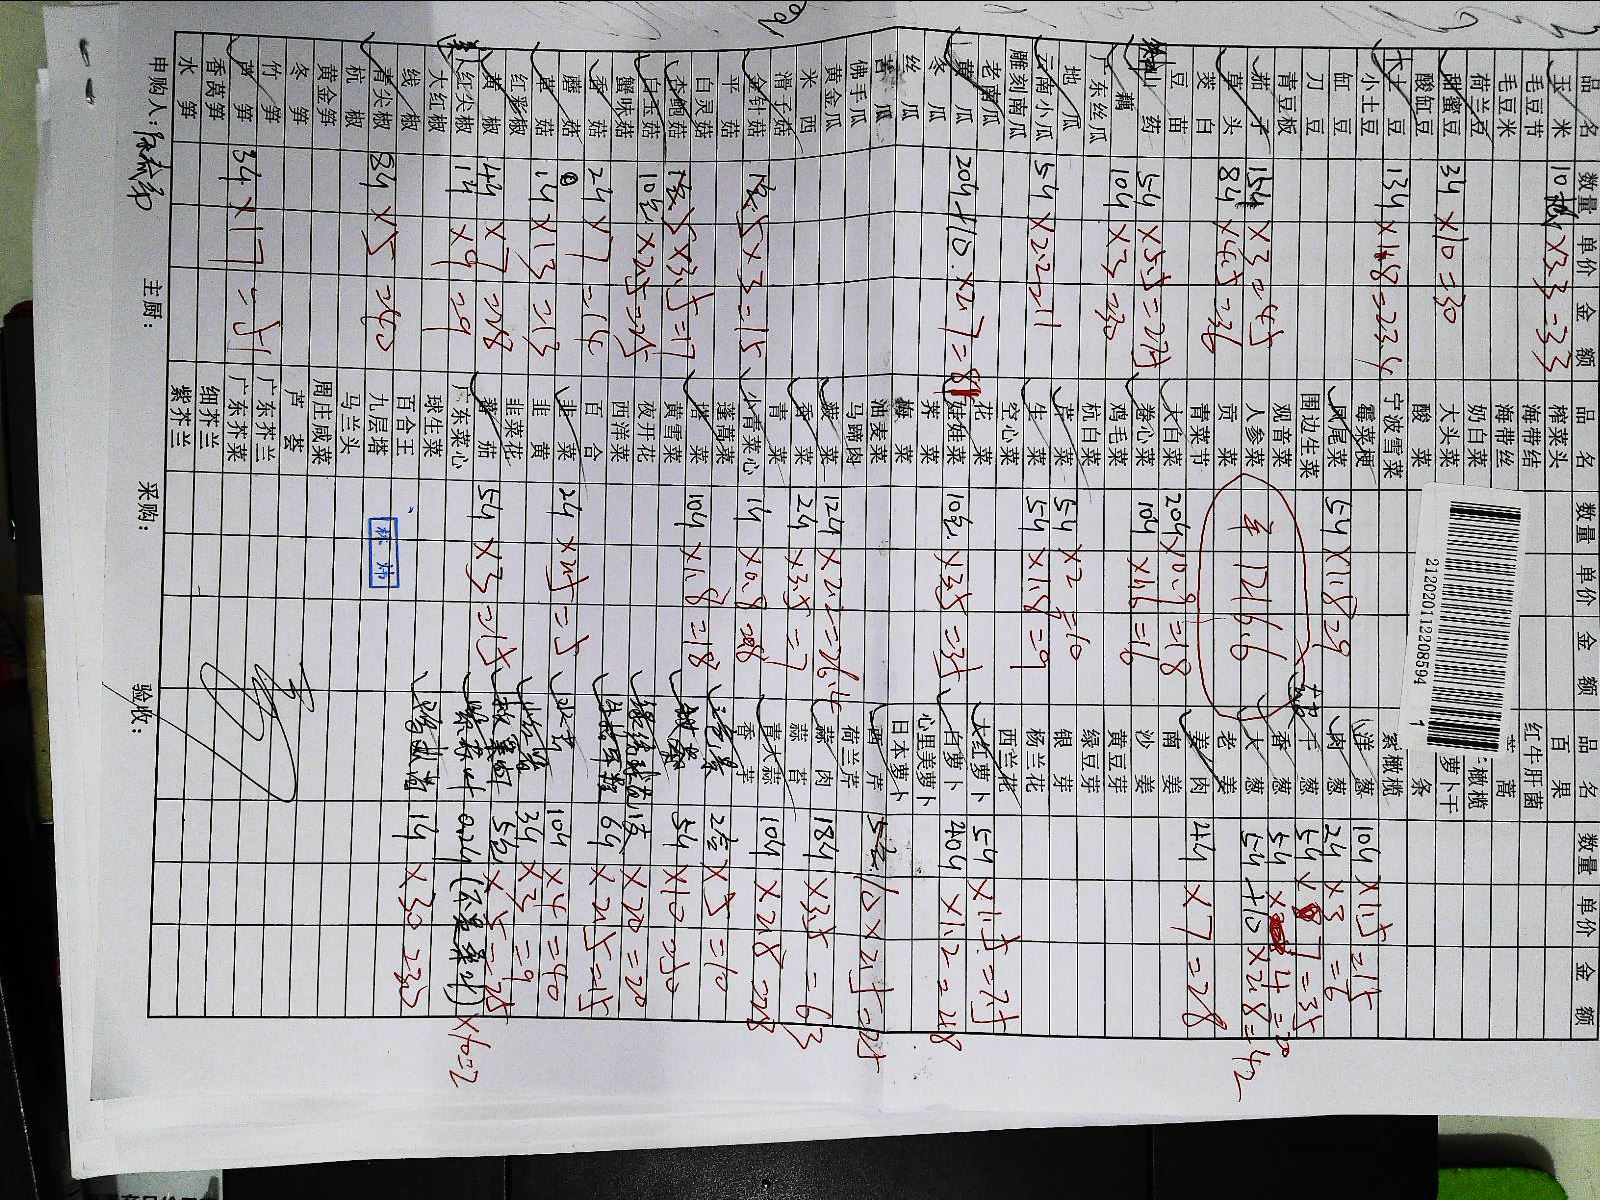 品名 数量 单价 金额
玉米 10袋 ×3.3=33
毛豆节
毛豆米
荷兰豆
甜蜜豆 3斤 ×10=30
酸缸豆
土豆 13斤 ×1.8=23.4
小土豆
缸豆
刀豆
青豆板
茄子 15斤 ×3=45
草头 8斤 ×4.5=36
茭白
豆苗
山药 5斤 ×5.5=27.5
藕 10斤 ×3=30
广东丝瓜
地瓜
云南小瓜 5斤 ×2.2=11
雕刻南瓜
老南瓜
黄瓜 20斤+10 ×2.7=81
冬瓜
丝瓜
苦瓜
佛手瓜
黄金瓜
西米
滑子菇
金针菇 5×3=15
平菇
白灵菇
杏鲍菇 5×3.5=17
白玉菇 10包 ×2.5=25
蟹味菇
香菇 2斤 ×7=14
蘑菇
草菇 1斤 ×13=13
红彩椒
黄椒 4斤 ×7=28
红尖椒 1斤 ×9=9
大红椒
线椒
青尖椒 8斤 ×5=40
杭椒
黄金笋
冬笋
竹笋
芦笋 3斤 ×17=51
香莴笋
水笋
品名 数量 单价 金额
榨菜头
海带结
海带丝
奶白菜
大头菜
酸菜
宁波雪菜
霉菜梗
凤尾菜 5斤 ×1.8=9
围边生菜
观音菜
人参菜
1216.6
贡菜
青菜节
大白菜 20斤 ×0.9=18
卷心菜 10斤 ×1.6=16
鸡毛菜
杭白菜
芹菜 5斤 ×2=10
生菜 5斤 ×1.8=9
空心菜
花菜
娃娃菜 10包 ×3.5=35
荠菜
梅菜
油麦菜
马蹄肉
菠菜 12斤 ×2.2=26.4
香菜 2斤 ×3.5=7
青菜
小青菜心 1斤 ×0.8=0.8
蓬蒿菜
塔菜 10斤 ×1.8=18
黄雪菜
夜开花
西洋菜
百合
韭菜 2斤 ×2.5=5
韭黄
韭菜花
番茄 5斤 ×3=15
广东菜心
球生菜
百合王
九层塔
马兰头
周庄咸菜
芦荟
广东芥兰
广东芥菜
细芥兰
紫芥兰
品名 数量 单价 金额
百果
红牛肝菌
蒿
橄榄
萝卜干
条
紫橄榄
2120201122085941
洋葱 10斤 ×1.5=15
肉葱 2斤 ×3=6
干葱 5斤 ×7=35
香葱 5斤 ×4=20
大葱 5斤+10 ×2.8=42
老姜
肉姜 4斤 ×7=28
南姜
沙姜
黄豆芽
绿豆芽
银芽
杨兰花
西兰花
大红萝卜 5斤 ×1.5=7.5
白萝卜 40斤 ×1.2=48
心里美萝卜
日本萝卜
西芹 10×2.5=25
荷兰芹
蒜肉 18斤 ×3.5=63
蒜苔
青大蒜 10斤 ×2.8=28
香芽
2盒 ×5=10
5斤 ×10=50
×20=20
6斤 ×2.5=15
10斤 ×4=40
3斤 ×3=9
5包 ×5=25
0.2斤 ×10=2
1斤 ×30=30
林炜
申购人: 主厨: 采购: 验收: